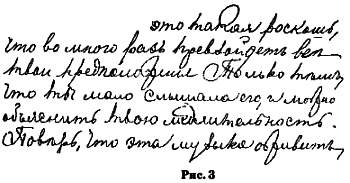 это такая роскошь,
что во много разъ превзойдетъ все
твои предположенія Только темъ,
что ты мало слышала его, и можно
объяснить твою медлительность.
Поверь, что эта музыка оживитъ
Рис. 3